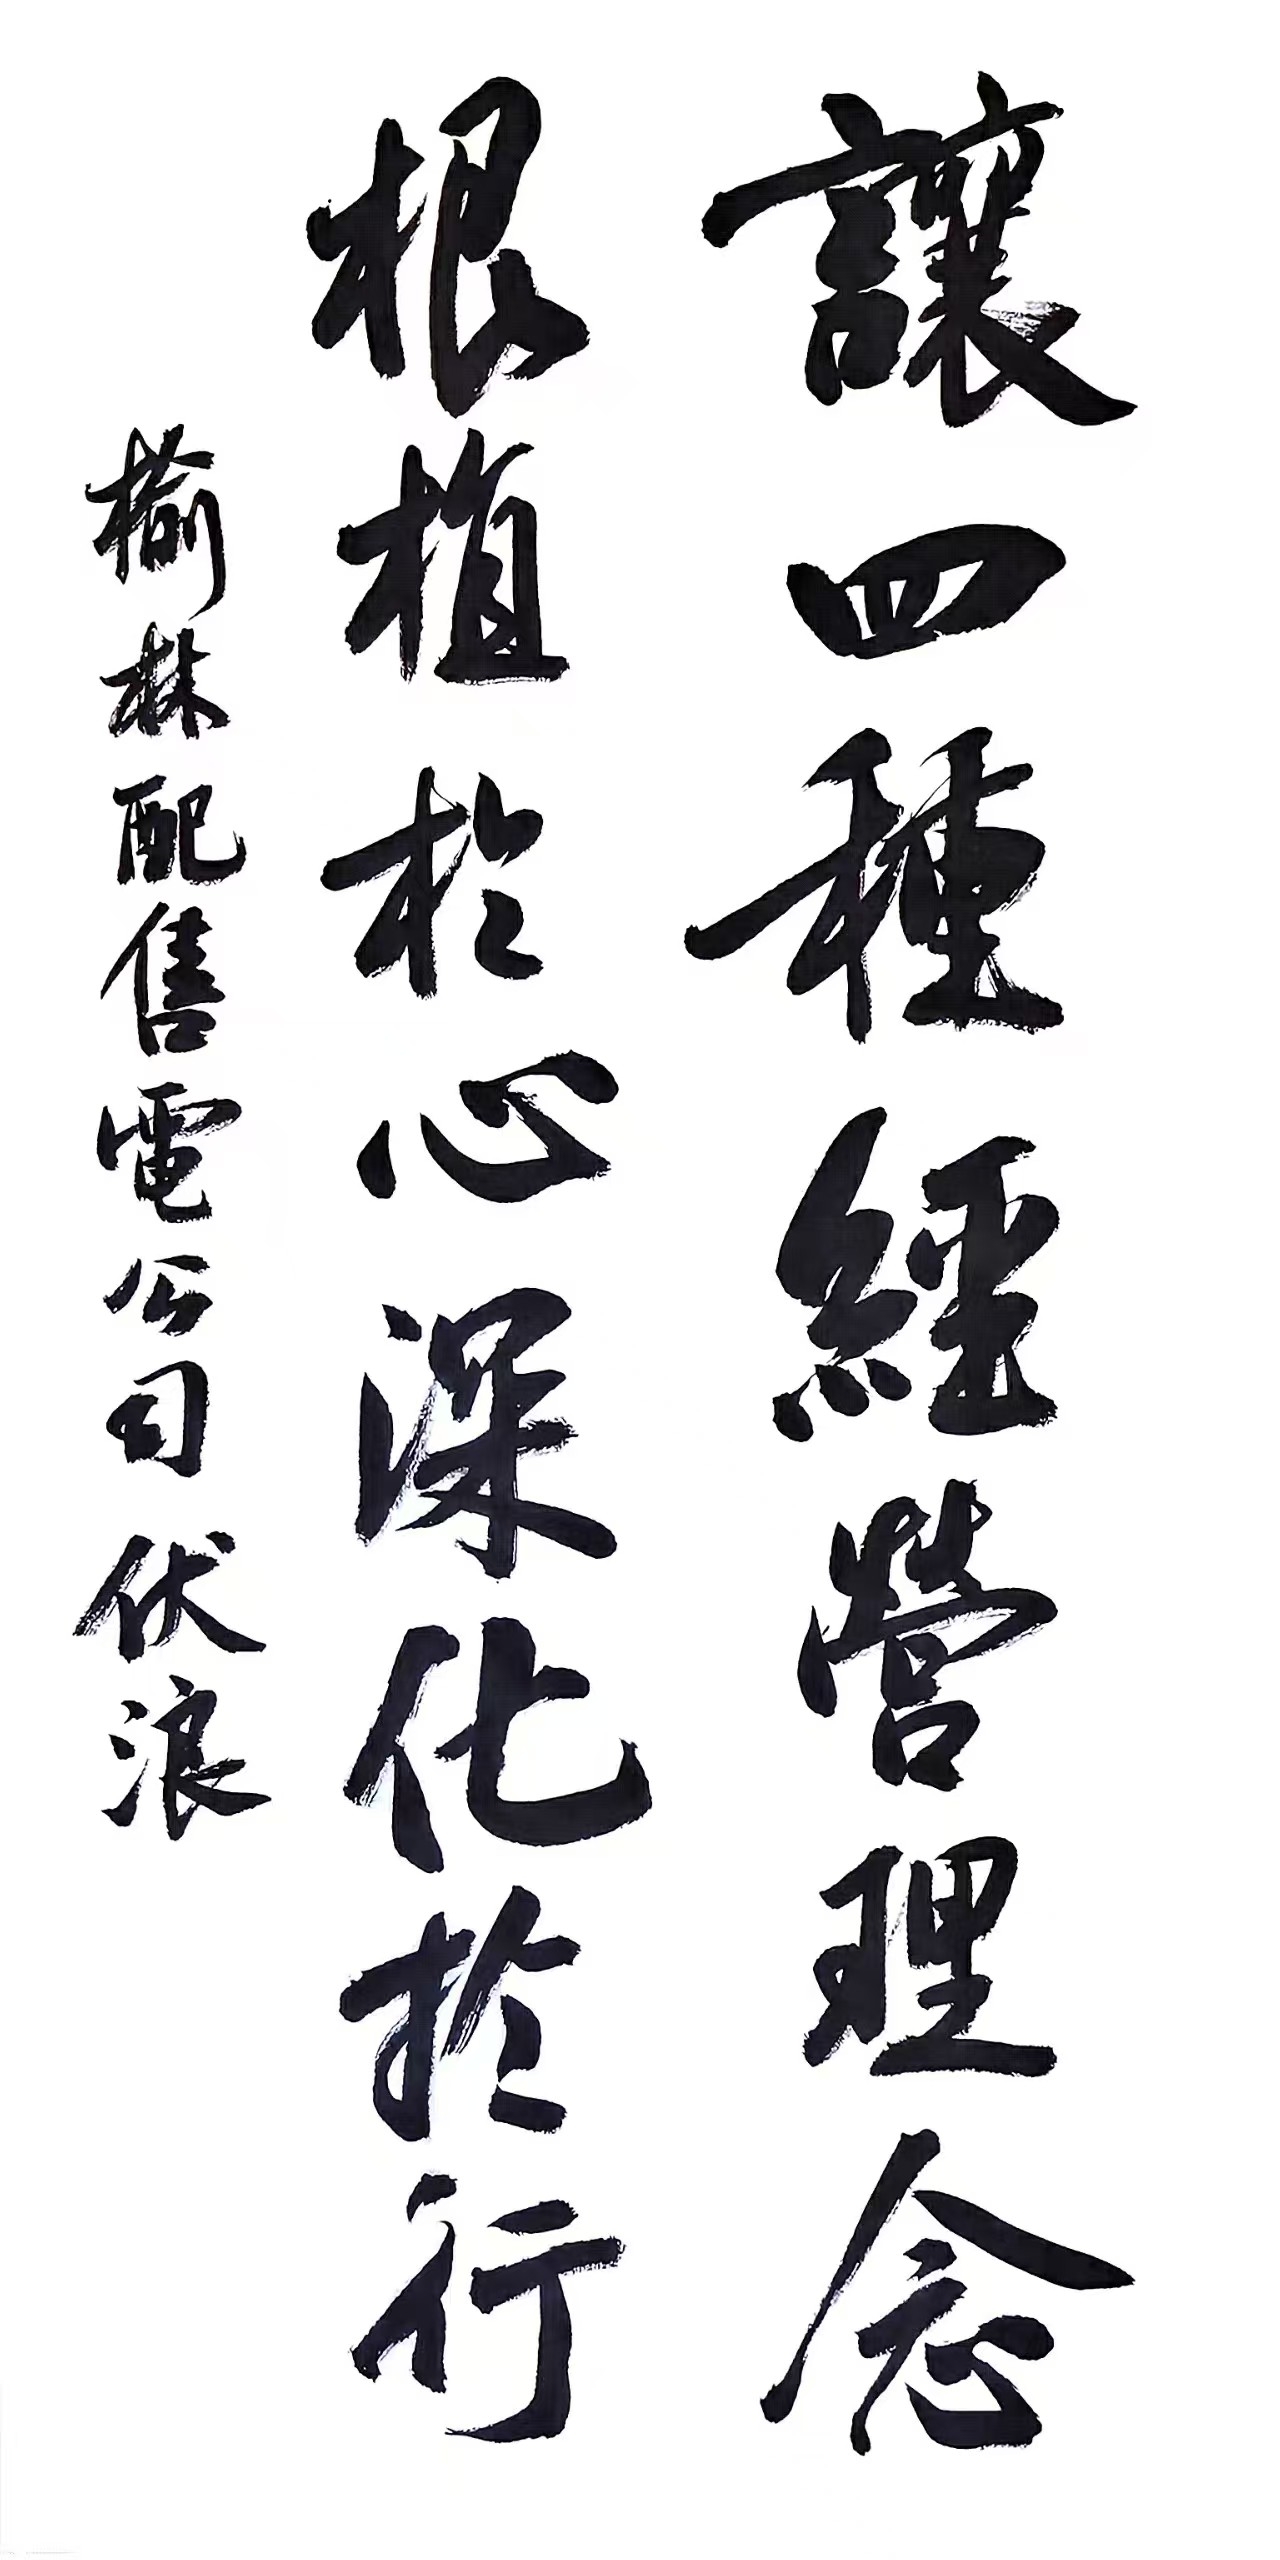 讓四種經營理念
根植於心深化於行
榆林配售電公司伏浪